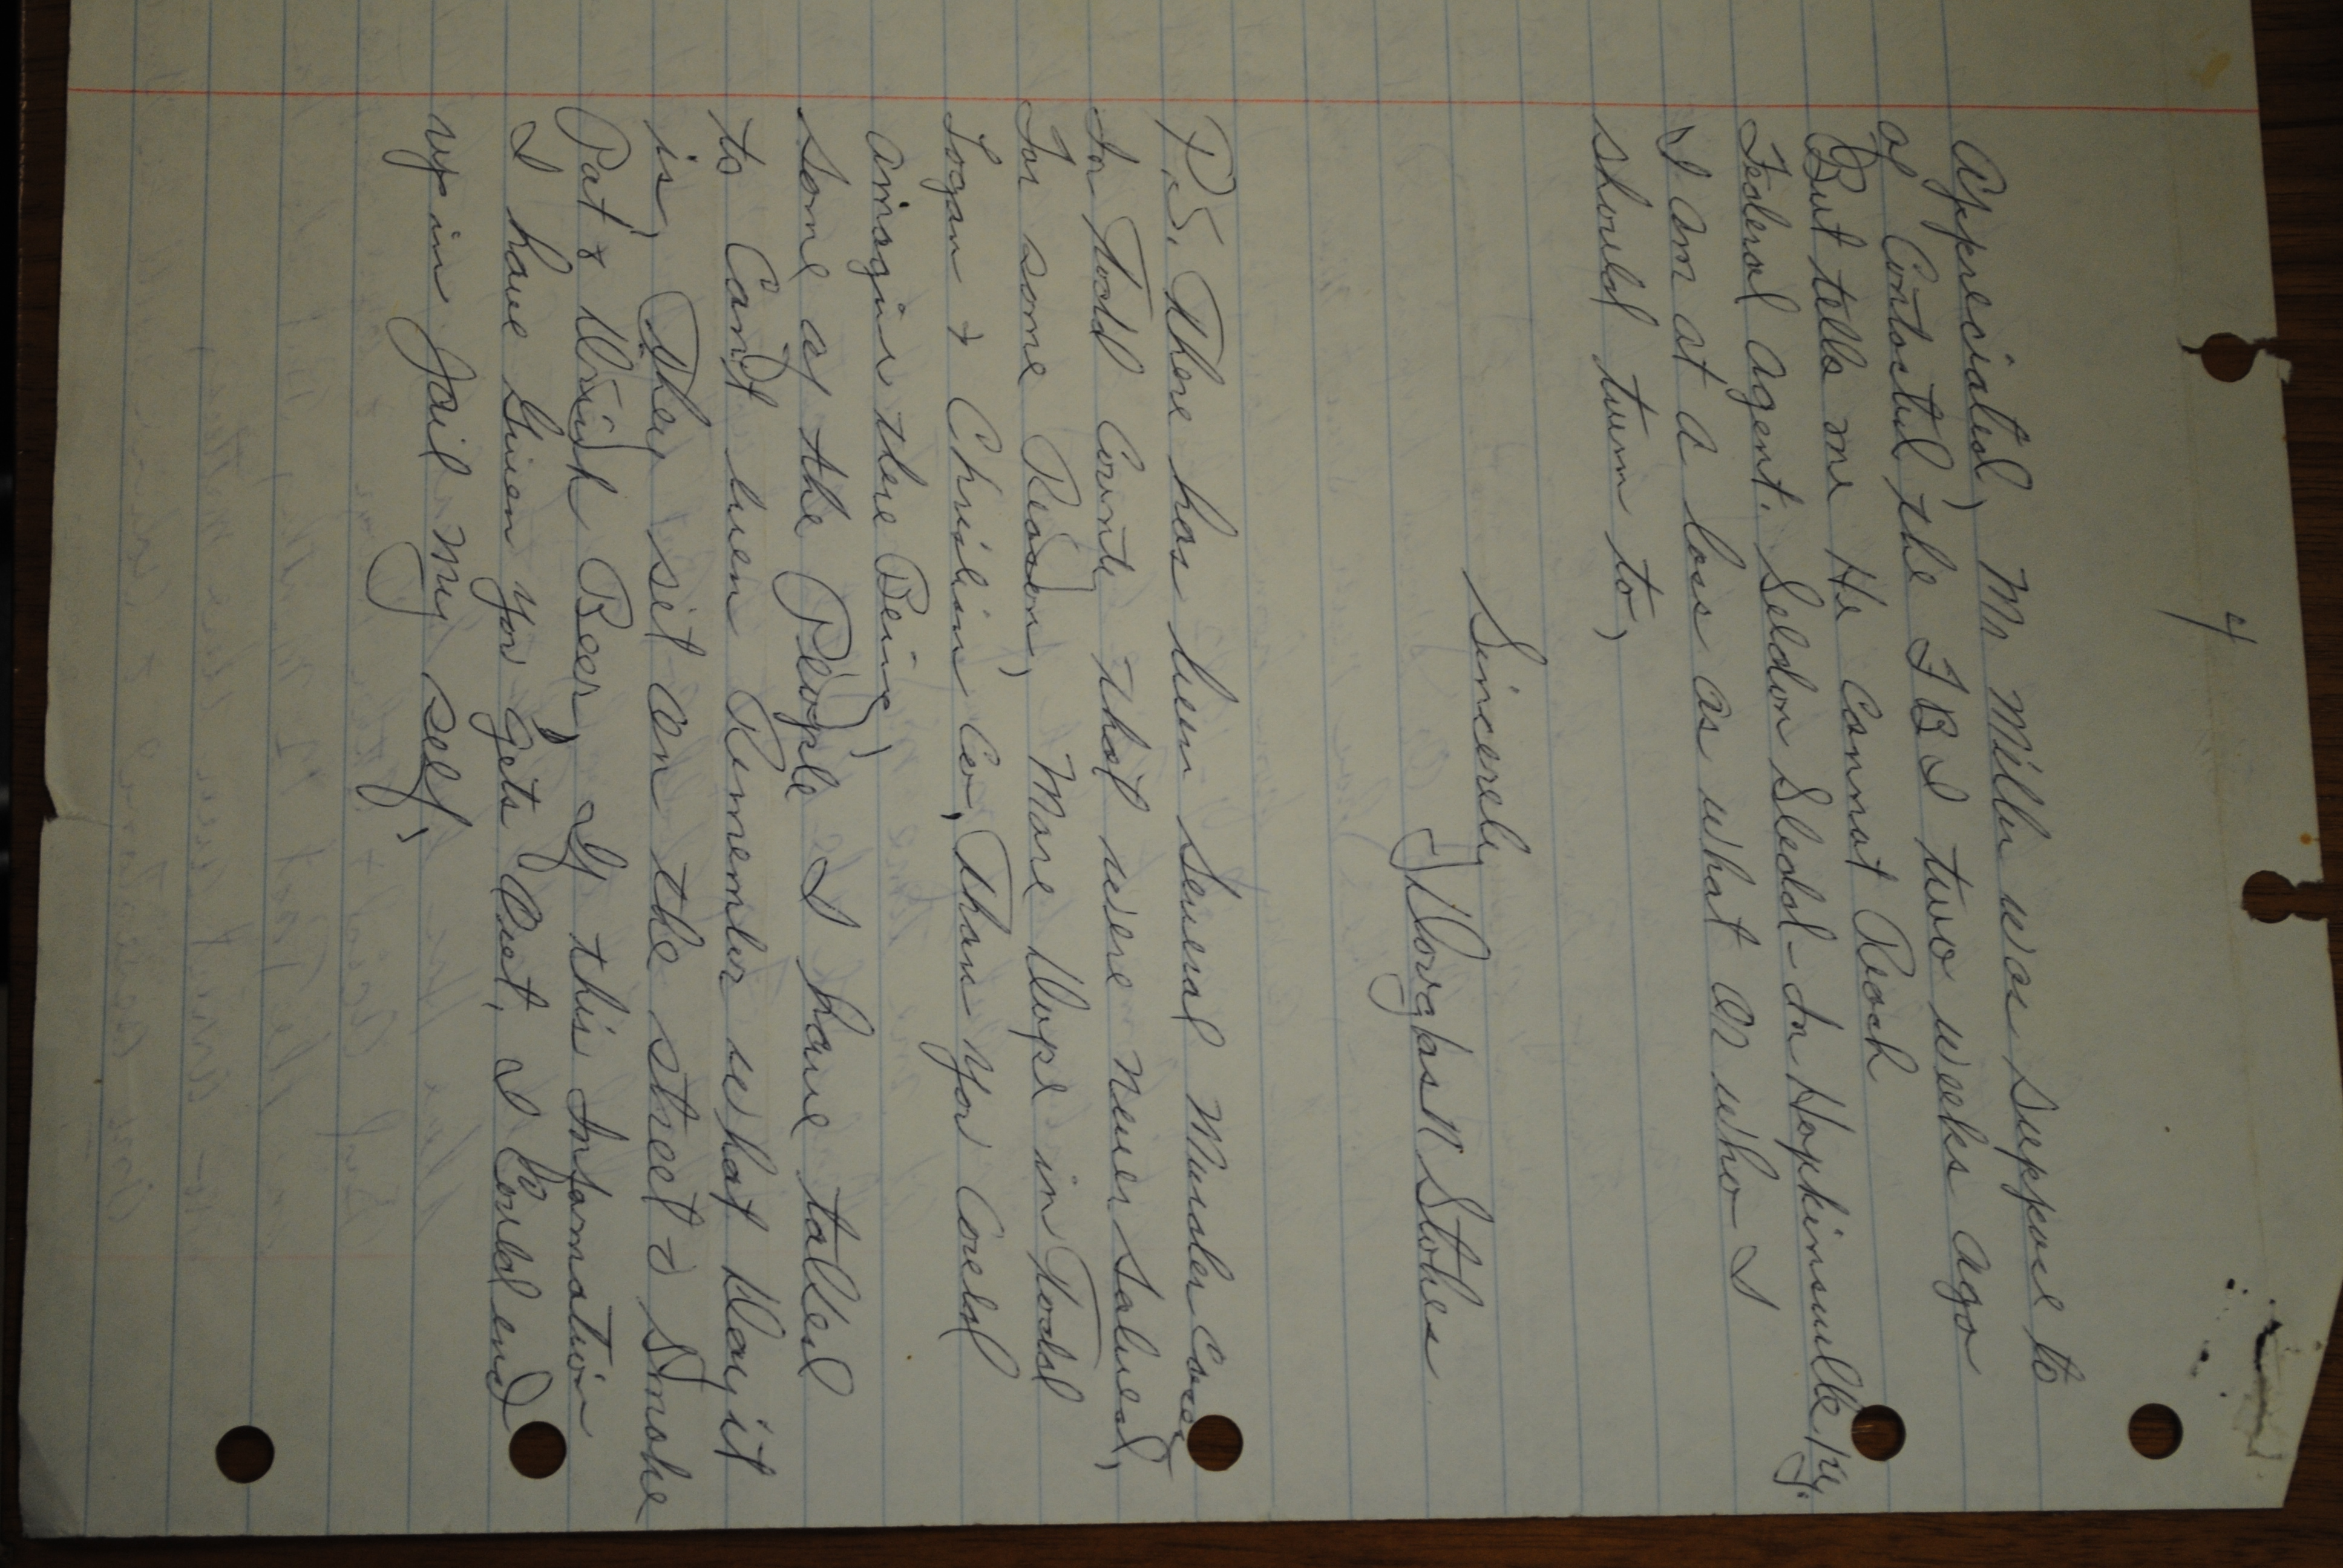 4
Appreciated, Mr Miller was suppose to
of Contacted the FBI two weeks ago
But tells me He Cannot Reach
Federal Agent. Seldon Sledd - In Hopkinsville Ky.
I am at a loss as what or who I
should turn to,
Sincerely
Douglas Stokes
P.S. There has been Several Murder Cases
In Todd County that were never Salved,
For some Reason, More Dope in Todd
Logan & Christin Co, Than you Could
amiagine there Being,
some of the People I have talked
to Can't even Remember what Day it
is, They sit on the street & Smoke
Pat & Drink Beer, If this Infamation
I have Given you gets Out, I Could end
up in Jail My self,